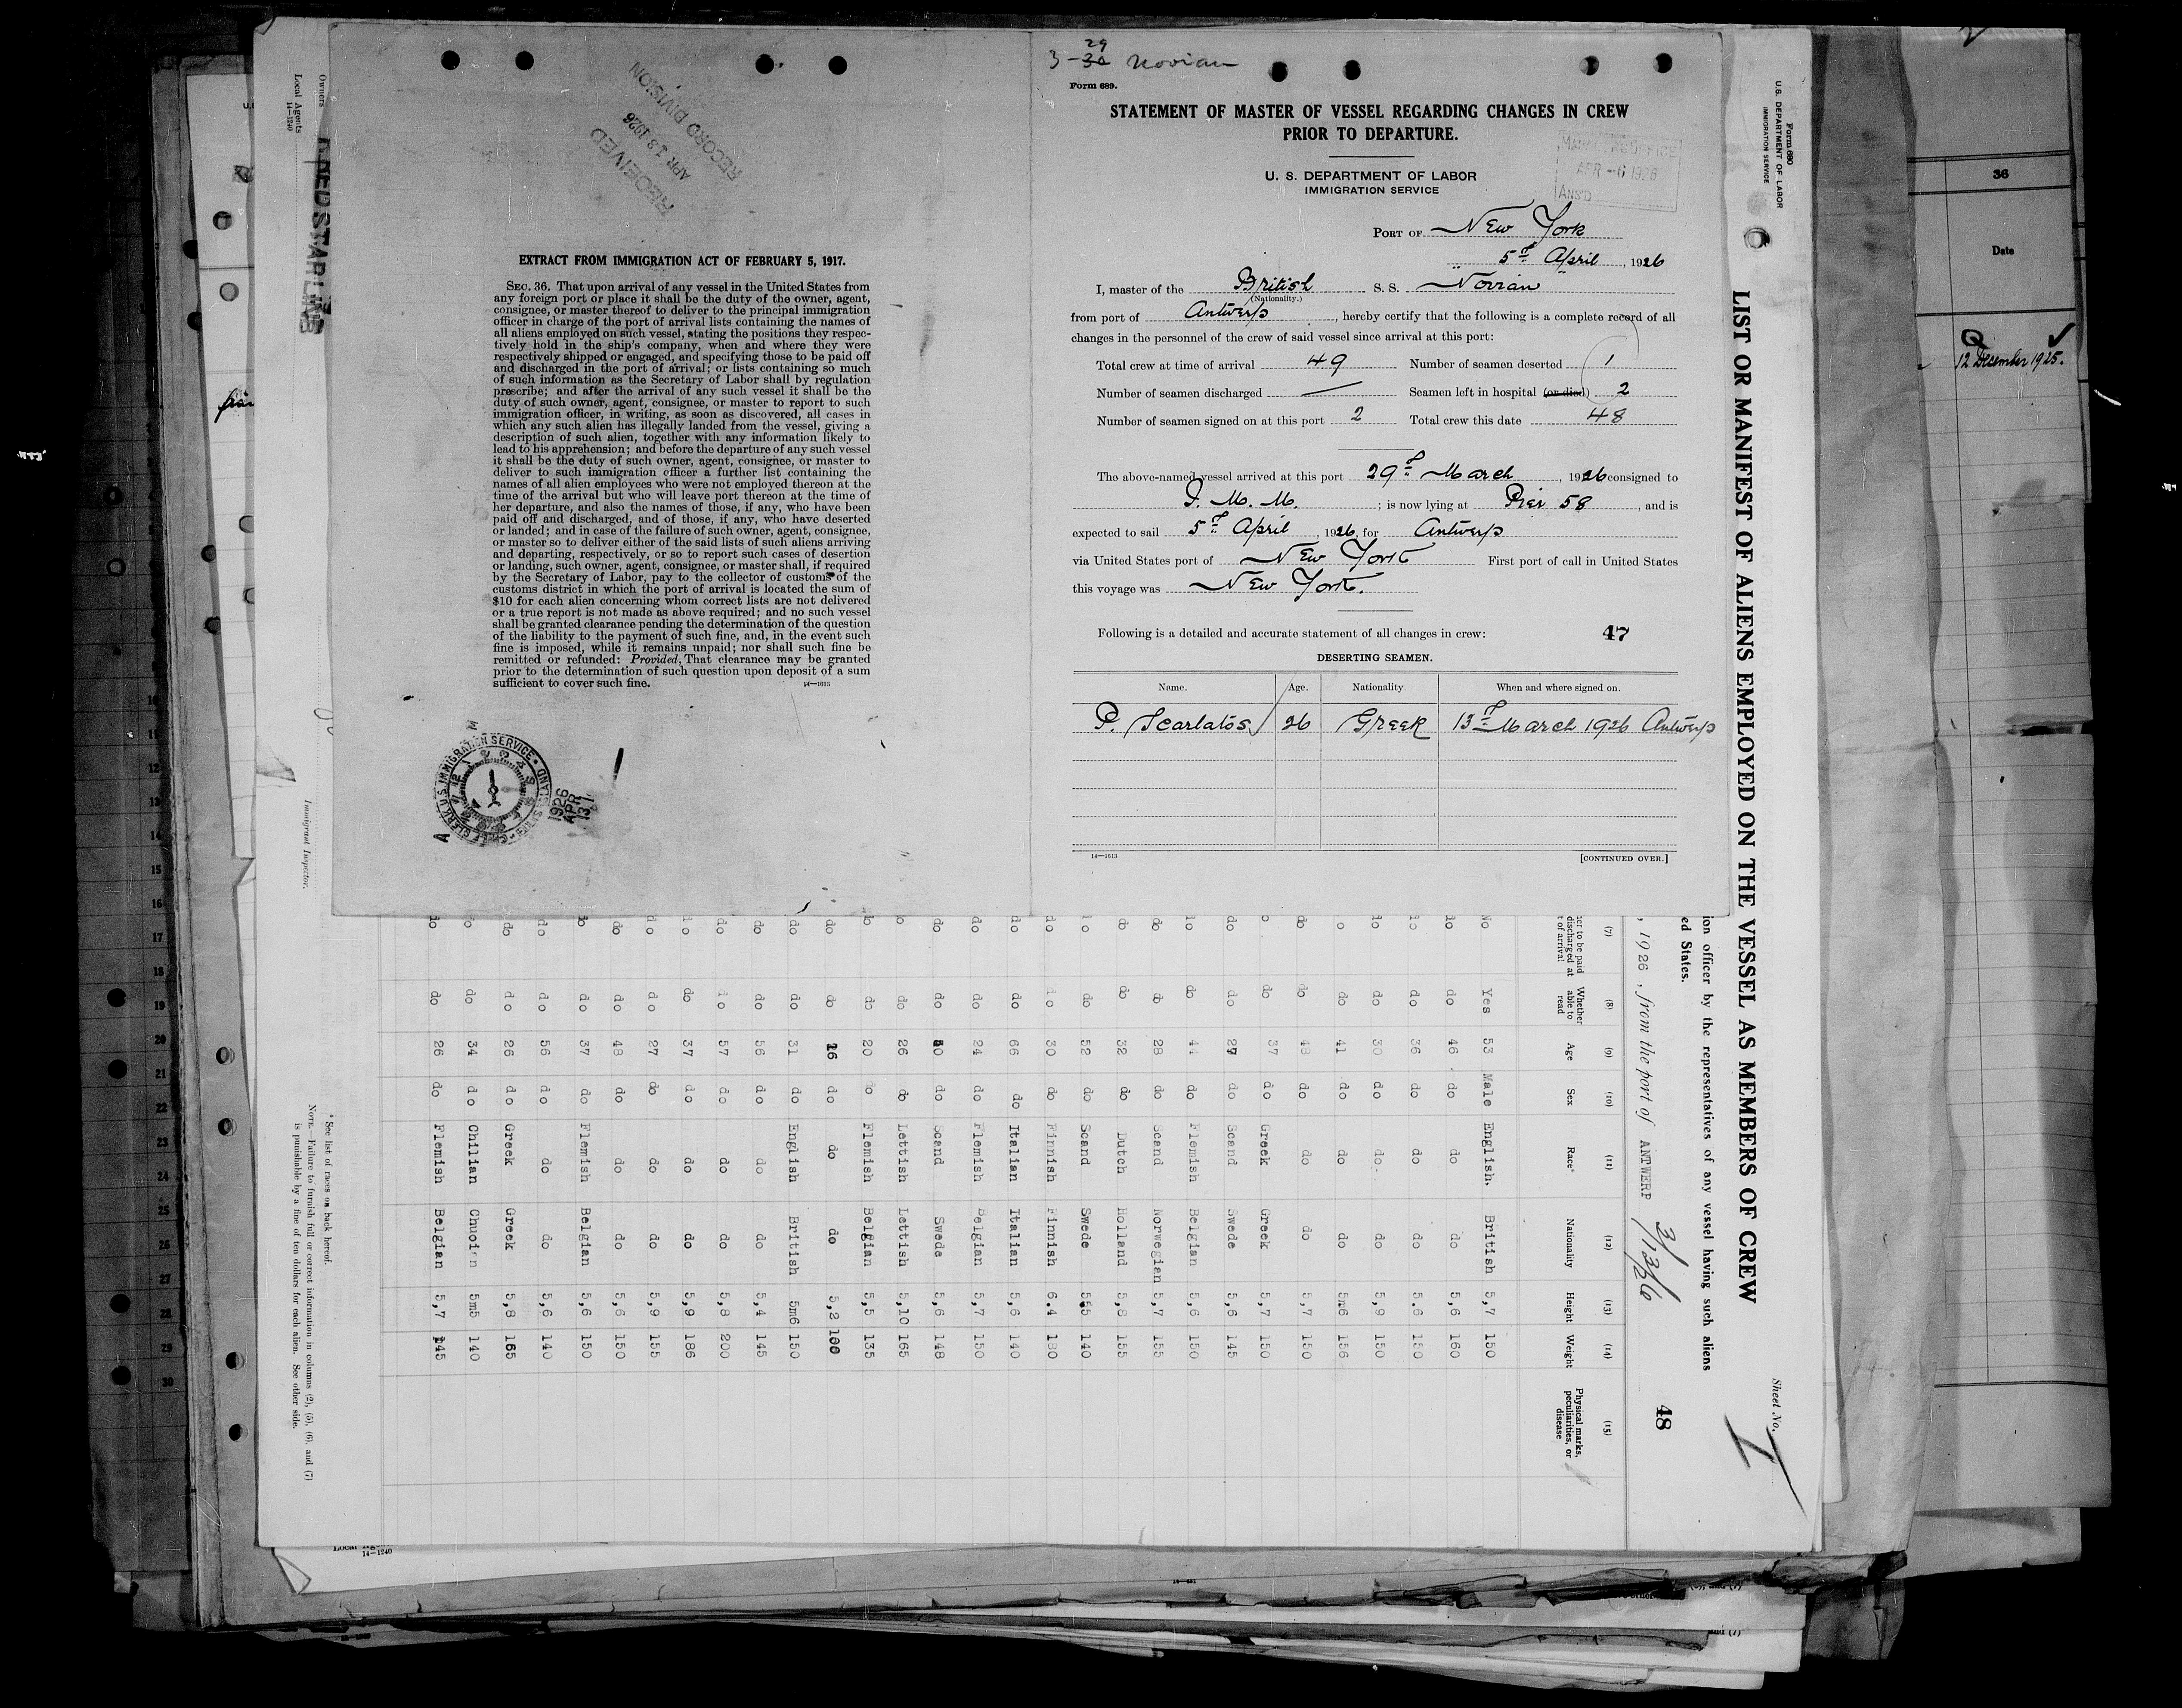 3-30 29 Novian
Form 689.
STATEMENT OF MASTER OF VESSEL REGARDING CHANGES IN CREW
PRIOR TO DEPARTURE.
U. S. DEPARTMENT OF LABOR
IMMIGRATION SERVICE
APR -6 1926
ANS'D
PORT OF New York
5th April, 1926
I, master of the British S. S. Novian
(Nationality.)
from port of Antwerp, hereby certify that the following is a complete record of all
changes in the personnel of the crew of said vessel since arrival at this port:
Total crew at time of arrival 49 Number of seamen deserted 1
Number of seamen discharged — Seamen left in hospital (or died) 2
Number of seamen signed on at this port 2 Total crew this date 48
The above-named vessel arrived at this port 29th March, 1926 consigned to
I. M. M.; is now lying at Pier 58, and is
expected to sail 5th April, 1926, for Antwerp
via United States port of New York First port of call in United States
this voyage was New York.
Following is a detailed and accurate statement of all changes in crew: 47
DESERTING SEAMEN.
Name. Age. Nationality When and where signed on.
P. Scarlatos 26 Greek 13th March 1926 Antwerp
14—1613 [CONTINUED OVER.]
RECEIVED
APR 13 1926
RECORD DIVISION
EXTRACT FROM IMMIGRATION ACT OF FEBRUARY 5, 1917.
SEC. 36. That upon arrival of any vessel in the United States from
any foreign port or place it shall be the duty of the owner, agent,
consignee, or master thereof to deliver to the principal immigration
officer in charge of the port of arrival lists containing the names of
all aliens employed on such vessel, stating the positions they respec-
tively hold in the ship's company, when and where they were
respectively shipped or engaged, and specifying those to be paid off
and discharged in the port of arrival; or lists containing so much
of such information as the Secretary of Labor shall by regulation
prescribe; and after the arrival of any such vessel it shall be the
duty of such owner, agent, consignee, or master to report to such
immigration officer, in writing, as soon as discovered, all cases in
which any such alien has illegally landed from the vessel, giving a
description of such alien, together with any information likely to
lead to his apprehension; and before the departure of any such vessel
it shall be the duty of such owner, agent, consignee, or master to
deliver to such immigration officer a further list containing the
names of all alien employees who were not employed thereon at the
time of the arrival but who will leave port thereon at the time of
her departure, and also the names of those, if any, who have been
paid off and discharged, and of those, if any, who have deserted
or landed; and in case of the failure of such owner, agent, consignee,
or master so to deliver either of the said lists of such aliens arriving
and departing, respectively, or so to report such cases of desertion
or landing, such owner, agent, consignee, or master shall, if required
by the Secretary of Labor, pay to the collector of customs of the
customs district in which the port of arrival is located the sum of
$10 for each alien concerning whom correct lists are not delivered
or a true report is not made as above required; and no such vessel
shall be granted clearance pending the determination of the question
of the liability to the payment of such fine, and, in the event such
fine is imposed, while it remains unpaid; nor shall such fine be
remitted or refunded: Provided, That clearance may be granted
prior to the determination of such question upon deposit of a sum
sufficient to cover such fine. 14—1613
1926
APR
13
Form 680
U.S. DEPARTMENT OF LABOR
IMMIGRATION SERVICE
Sheet No. 1
LIST OR MANIFEST OF ALIENS EMPLOYED ON THE VESSEL AS MEMBERS OF CREW
ion officer by the representatives of any vessel having such aliens
ed States.
, 1926, from the port of ANTWERP 3/13/26
48
(7) (8) (9) (10) (11) (12) (13) (14) (15)
Whether able to read Age Sex Race* Nationality Height Weight Physical marks, peculiarities, or disease
No Yes 53 Male English. British 5,7 150
do do 46 do do do 5,6 160
do do 36 do do do 5.6 150
do do 30 do do do 5,9 150
do 41 do do do 5m6 156
do do 48 do do do 5,7 150
do 37 do Greek Greek 5,7 150
do do 27 do Scand Swede 5,6 145
do do 44 do Flemish Belgian 5,6 150
do do 28 do Scand Norwegian 5,7 155
do do 32 do Dutch Holland 5,8 155
do do 52 do Scand Swede 5m5 140
do do 30 do Finnish Finnish 6.4 180
do do 66 do Italian Italian 5,6 140
do do 24 do Flemish Belgian 5,7 150
do do 30 do Scand Swede 5,6 148
do do 26 do Lettish Lettish 5,10 165
do do 20 do Flemish Belgian 5,5 135
do do 16 do do do 5,2 100
do do 31 do English British 5m6 150
do do 56 do do do 5,4 145
do do 57 do do do 5,8 200
do do 37 do do do 5,9 186
do do 27 do do do 5,9 155
do do 48 do do do 5,6 150
do do 37 do Flemish Belgian 5,6 150
do do 56 do do do 5,6 140
do do 26 do Greek Greek 5,8 165
do do 34 do Chilian 5m5 140
do do 26 do Flemish Belgian 5,7 145
* See list of races on back hereof.
NOTE.—Failure to furnish full or correct information in columns (2), (5), (6), and (7)
is punishable by a fine of ten dollars for each alien. See other side.
Immigrant Inspector.
Owners
Local Agents
14—1240
RED STAR LINE
36
Date
12 December 1925.
10
11
12
13
14
15
16
17
18
19
20
21
22
23
24
25
26
27
28
29
30
14—1240